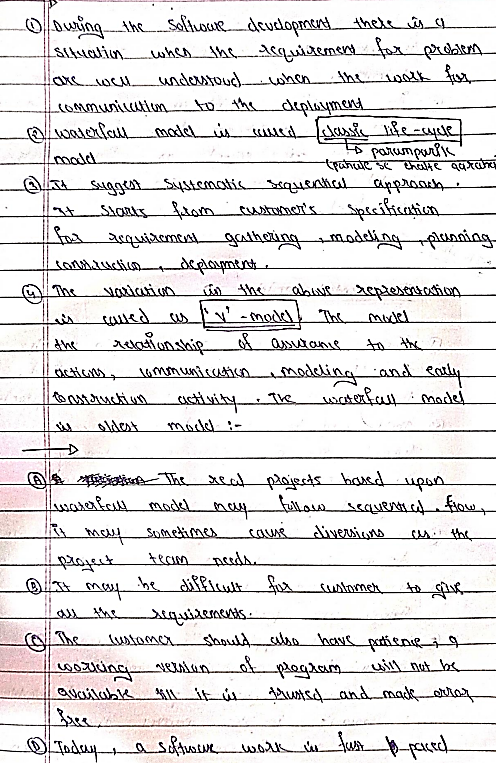 ① During the software development there is a
situation when the requirement for problem
are well understood when the work for
communication to the deployment
② waterfall model is called classic life-cycle
model → parumparik
(pahale se chalte aarahe
③ It suggest systematic sequential approach.
It starts from customer's specification
for requirement gathering, modeling, planning
construction, deployment.
④ The variation in the above representation
is called as 'v'-model. The model
the relationship of assurance to the
actions, communication, modeling and early
construction activity. The waterfall model
is oldest model :-
→
Ⓐ The real projects based upon
waterfall model may follow sequential flow,
it may sometimes cause diversions as the
project team needs.
Ⓑ It may be difficult for customer to give
all the requirements.
Ⓒ The customer should also have patience, a
working version of program will not be
available till it is trusted and made error
free.
Ⓓ Today, a software work is fast paced